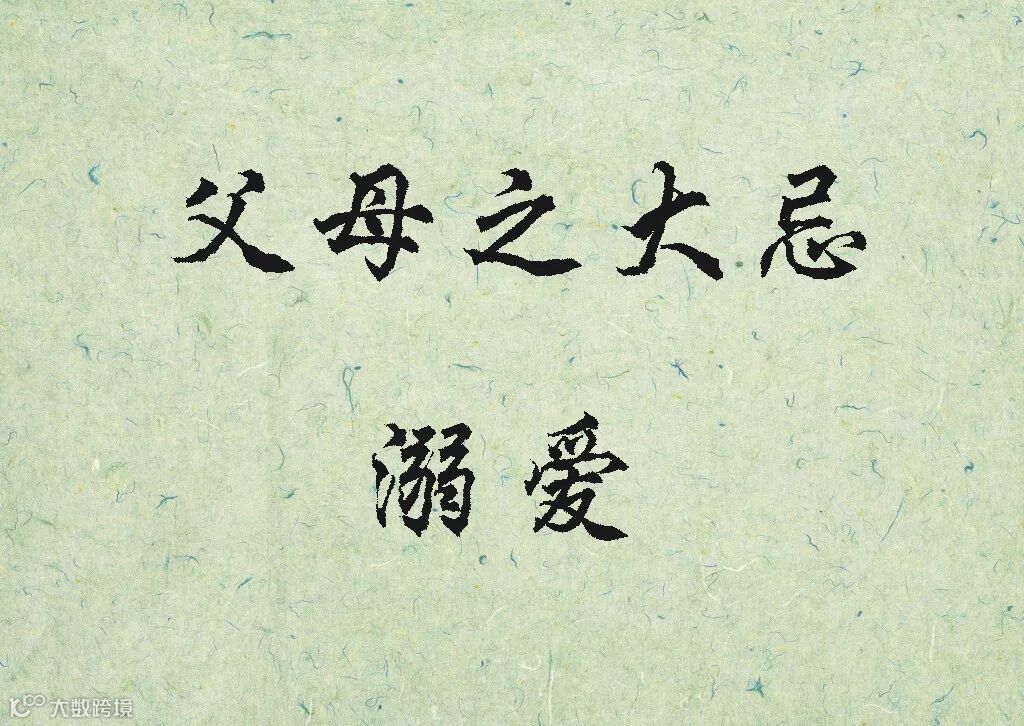 父母之大忌
溺爱
大数跨境